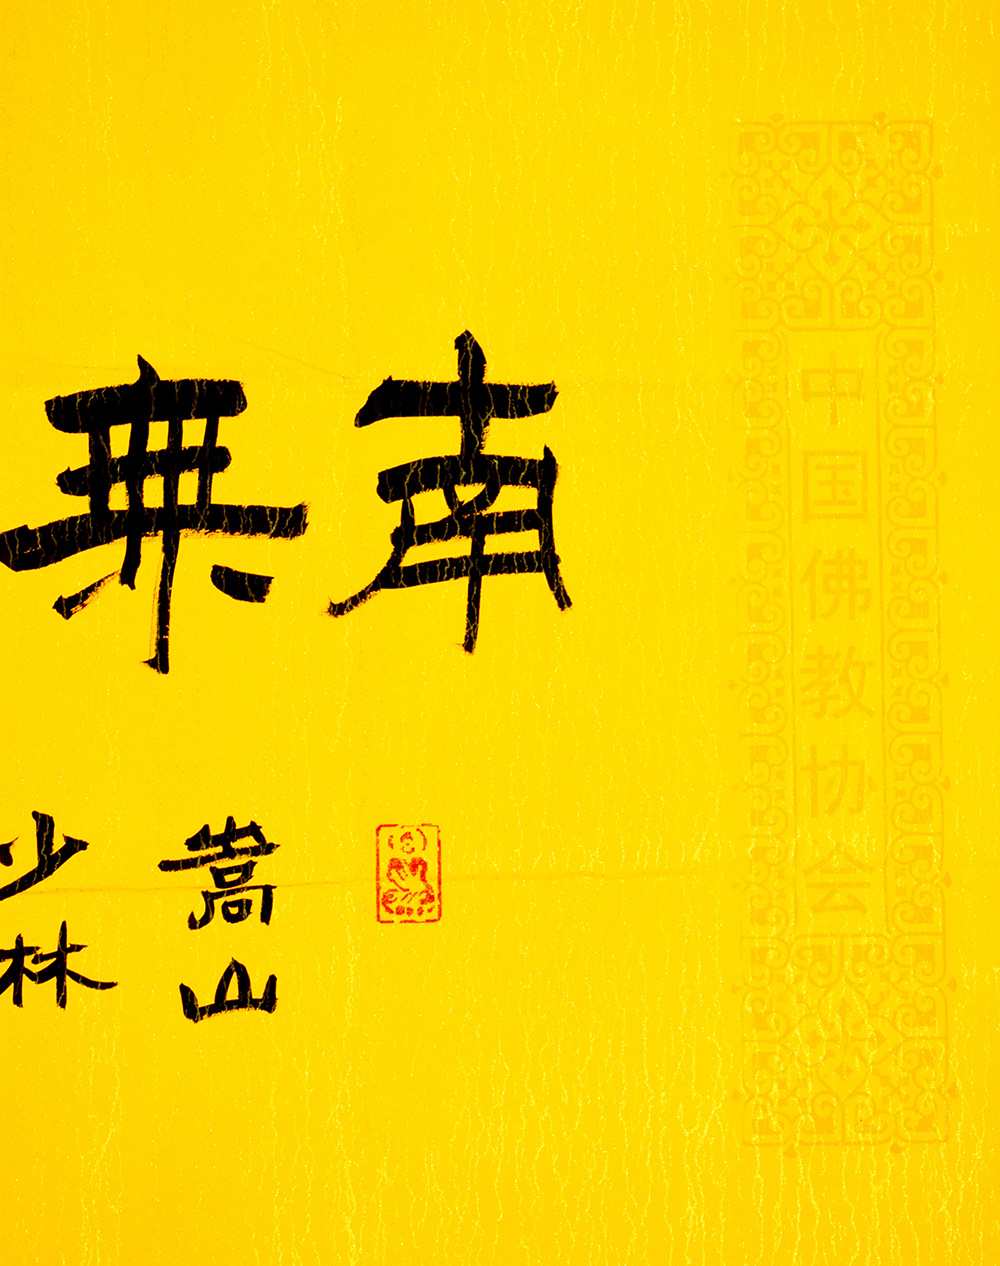 中国佛教协会
南無
嵩山
少林